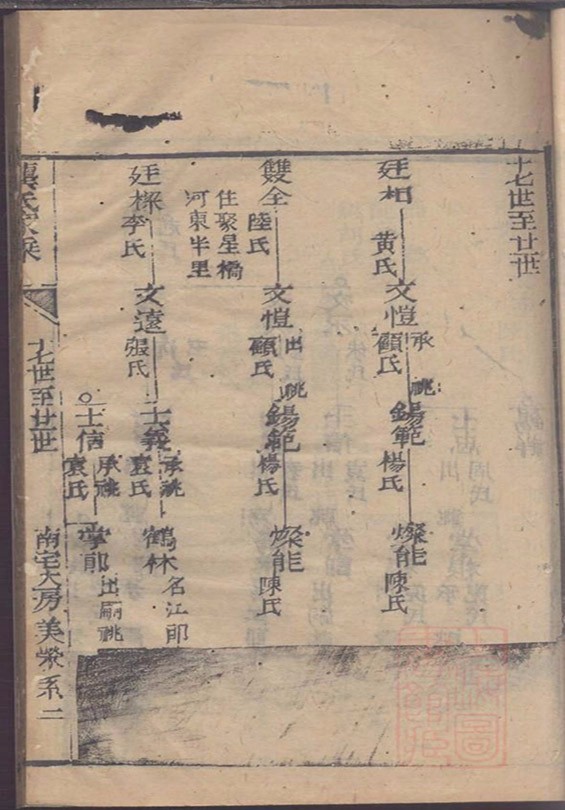 十七世至廿世
廷相
黃氏
文愷
承
祧
顧氏
錫範
楊氏
燦能
陳氏
雙全
陸氏
住聚星橋
河東半里
文愷
出
祧
顧氏
錫範
楊氏
燦能
陳氏
廷樑
李氏
文遠
張氏
士義
承祧
袁氏
鶴林
名江郎
士信
承祧
袁氏
掌郎
出嗣祧
龔氏家乘
十七世至廿世
南宅大房美
系二